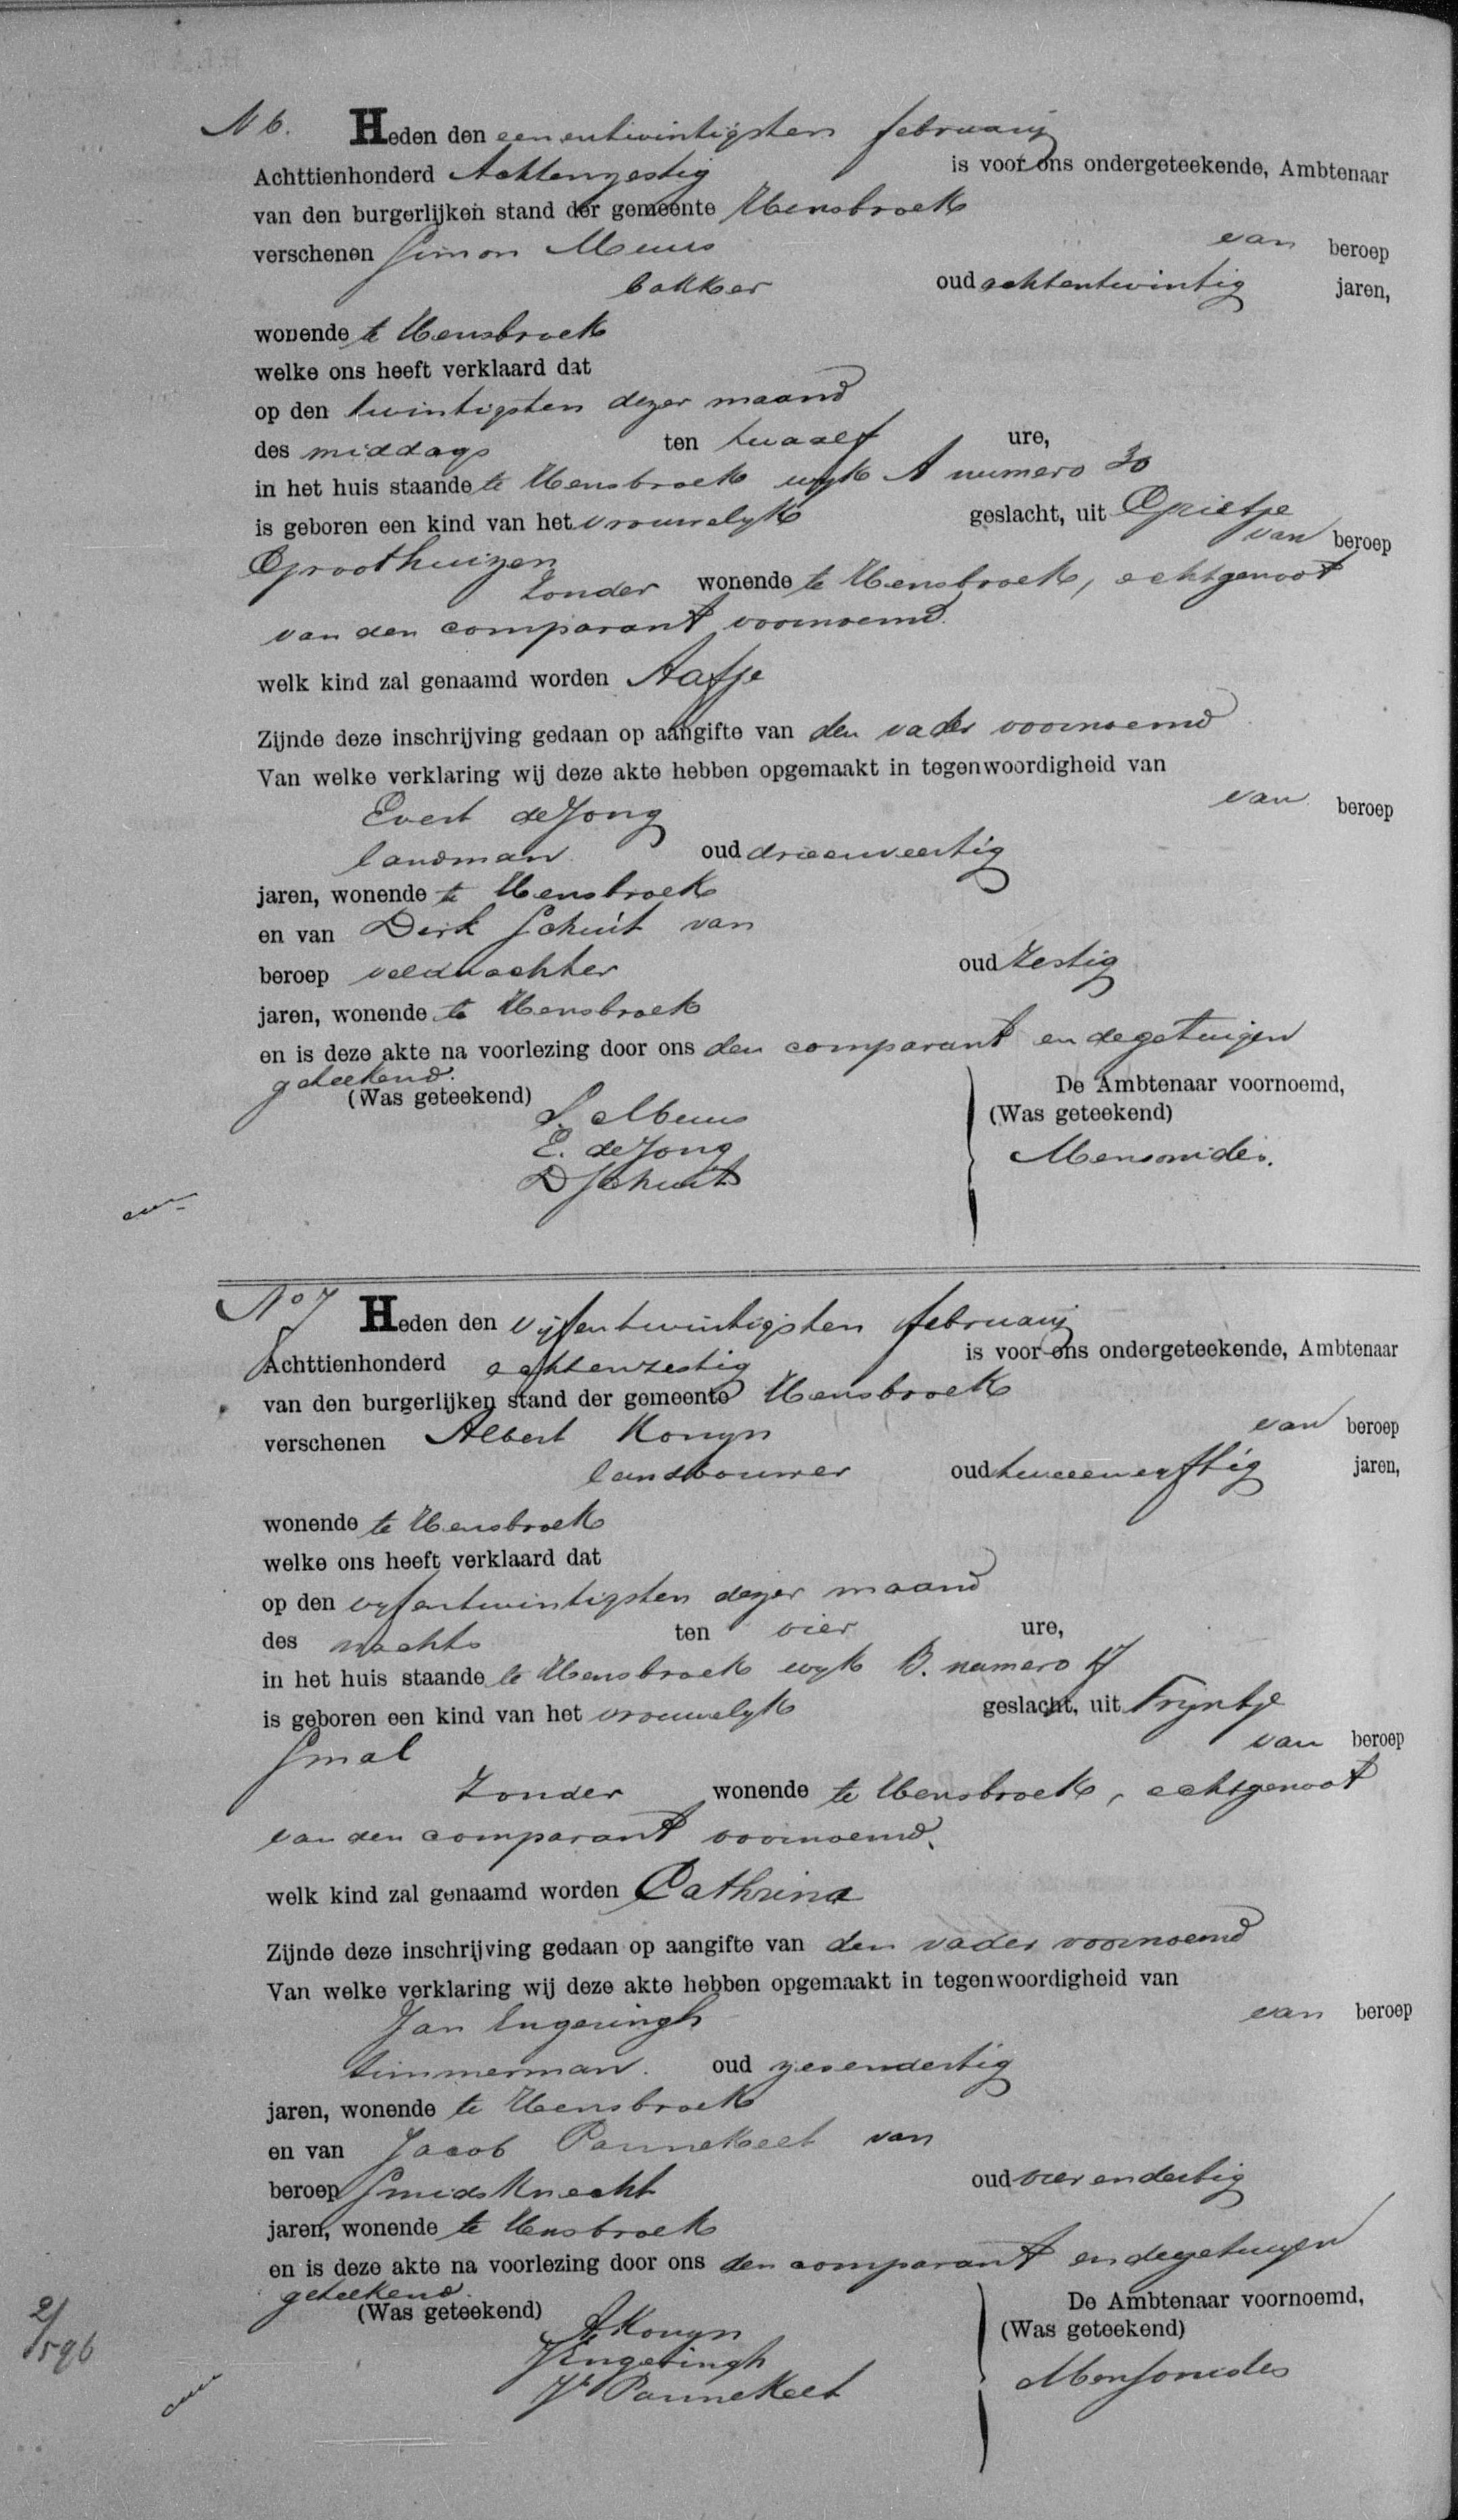 N 6. Heden den eenentwintigsten februarij
Achttienhonderd Achtenzestig is voor ons ondergeteekende, Ambtenaar
van den burgerlijken stand der gemeente Hensbroek
verschenen Simon Meurs van beroep
bakker oud achtentwintig jaren,
wonende te Hensbroek
welke ons heeft verklaard dat
op den twintigsten dezer maand
des middags ten twaalf ure,
in het huis staande te Hensbroek wyk A numero 30
is geboren een kind van het vrouwelyk geslacht, uit Grietje
Groothuizen van beroep
Zonder wonende te Hensbroek, echtgenoot
van den comparant voornoemd.
welk kind zal genaamd worden Aafje
Zijnde deze inschrijving gedaan op aangifte van den vader voornoemd
Van welke verklaring wij deze akte hebben opgemaakt in tegenwoordigheid van
Evert de Jong van beroep
landman oud drieenveertig
jaren, wonende te Hensbroek
en van Derk Schuit van
beroep veldwachter oud Zestig
jaren, wonende te Hensbroek
en is deze akte na voorlezing door ons den comparant en de getuigen
geteekend.
(Was geteekend) De Ambtenaar voornoemd,
S. Meurs (Was geteekend)
E. de Jong Mensonides.
D Schuit
No 7 Heden den vijfentwintigsten februarij
Achttienhonderd achtenzestig is voor ons ondergeteekende, Ambtenaar
van den burgerlijken stand der gemeente Hensbroek
verschenen Albert Konyn van beroep
landbouwer oud tweeenveertig jaren,
wonende te Hensbroek
welke ons heeft verklaard dat
op den vyfentwintigsten dezer maand
des nachts ten vier ure,
in het huis staande te Hensbroek wyk B. numero 17
is geboren een kind van het vrouwelyk geslacht, uit Tryntje
Smal van beroep
Zonder wonende te Hensbroek, echtgenoot
van den comparant voornoemd.
welk kind zal genaamd worden Cathrina
Zijnde deze inschrijving gedaan op aangifte van den vader voornoemd
Van welke verklaring wij deze akte hebben opgemaakt in tegenwoordigheid van
Jan Engeringh van beroep
timmerman. oud zesendertig
jaren, wonende te Hensbroek
en van Jacob Pannekeet van
beroep Smidsknecht oud vierendertig
jaren, wonende te Hensbroek
en is deze akte na voorlezing door ons den comparant en de getuigen
geteekend.
(Was geteekend) De Ambtenaar voornoemd,
A Konyn (Was geteekend)
J Engeringh Mensonides
Jb Pannekeet
2/596